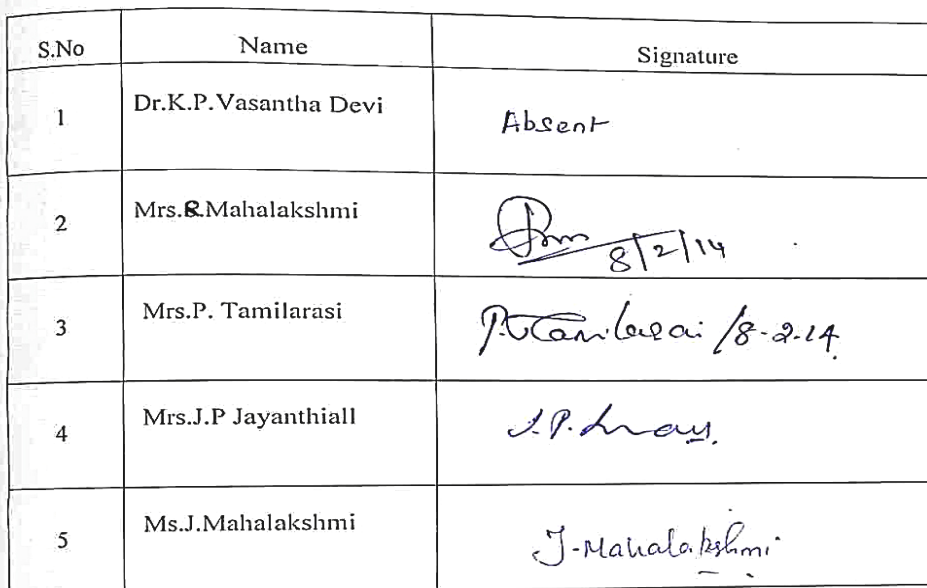 S.No Name Signature
1 Dr.K.P.Vasantha Devi Absent
2 Mrs.R.Mahalakshmi 8/2/14
3 Mrs.P. Tamilarasi P.Tamilarasi /8-2-14
4 Mrs.J.P Jayanthiall J.P.
5 Ms.J.Mahalakshmi J-Mahalakshmi